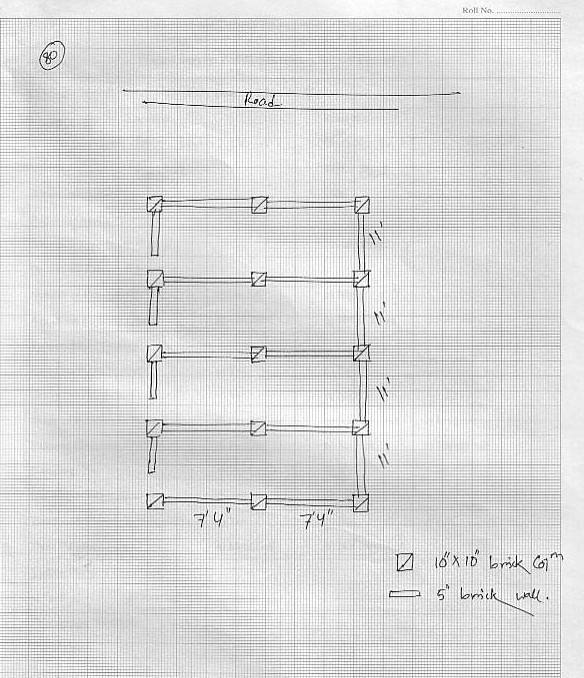 Roll No.
80
Road
11'
11'
11'
11'
7'4" 7'4"
10"X10" brick Colm
5" brick wall.